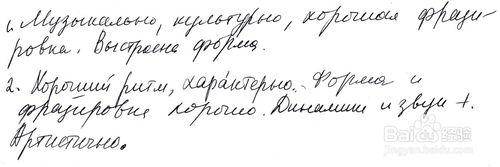 1. Музыкально, культурно, хорошая фрази-
ровка. Выстроена форма.
2. Хороший ритм, характерно. Форма и
фразировка хорошо. Динамика и звук +.
Артистично.
Baidu 经验
jingyan.baidu.com